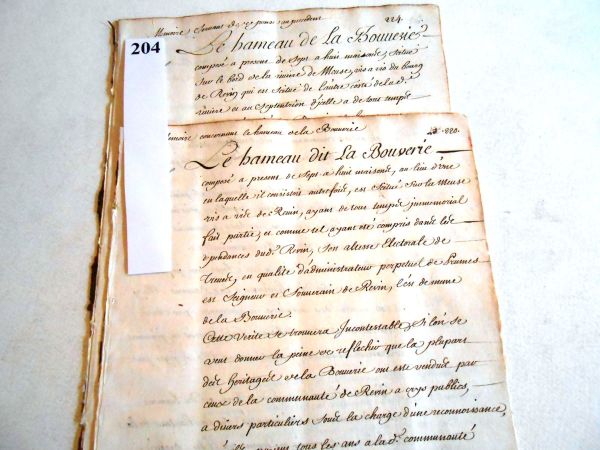 204
224.
Le hameau de La Bouverie
composé a present de sept a huit maisons, scitué
sur le bord de la riviere de Meuse, vis a vis du bourg
de Revin qui est scitué de l'autre côté de la de
riviere et au septentrion d'icelle a de tous temps
Memoire concernant le hameau de la Bouverie
220.
Le hameau dit La Bouverie
composé a present de sept a huit maisons, au lieu d'une
en laquelle il consistoit autrefois, est scitué sur la Meuse
vis a vis de Revin, ayant de tous temps immemorial
fait partie, et comme tel ayant eté compris dans les
dependances dud. Revin, Son altesse Electorale de
Treves, en qualité d'administrateur perpetuel de Prumes
est Seigneur et Souverain de Revin, l'est de meme
de la Bouverie.
Cette verité se trouvera Incontestable, Si l'on se
veut donner la peine de reflechir que la plupart
des heritages de la Bouverie ont eté vendus par
ceux de la communauté de Revin a crys publics,
a divers particuliers sous la charge d'une reconnoissance,
tous les ans a la de communauté